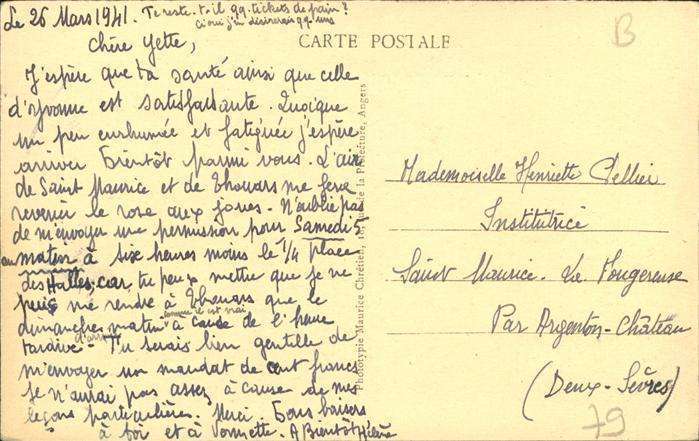 Le 26 Mars 1941. Te reste-t-il qq. tickets de pain?
Si oui j'en désirerais qq. uns
Chère Yette,
J'espère que ta santé ainsi que celle
d'Yvonne est satisfaisante. Quoique
un peu enrhumée et fatiguée j'espère
arriver bientôt parmi vous. L'air
de Saint Maurice et de Thouars me fera
revenir le rose aux joues. N'oublie pas
de m'envoyer une permission pour Samedi 5
au matin à six heures moins le 1/4 place
des Halles, car tu peux mettre que je ne
puis me rendre à Thouars que le
comme il est vrai
dimanche matin à cause de l'heure
tardive d'arrivée. Tu serais bien gentille de
m'envoyer un mandat de cent francs
Je n'aurai pas assez à cause de mes
leçons particulières. Merci. Bons baisers
à toi et à Vonnette. A Bientôt Hélène
CARTE POSTALE
Phototypie Maurice Chrétien, de la Préfecture, Angers
B
Mademoiselle Henriette Pellier
Institutrice
Saint Maurice-La Fougereuse
Par Argenton-Château
(Deux-Sèvres)
79